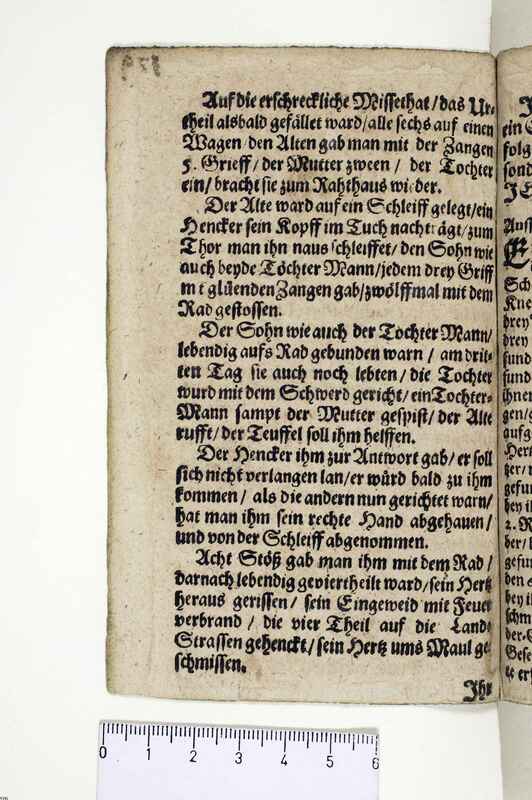 Auf die erschreckliche Missethat / das Ur-
theil alsbald gefället ward / alle sechs auf einen
Wagen / den Alten gab man mit der Zangen
5. Grieff / der Mutter zween / der Tochter
ein / bracht sie zum Rahthaus wieder.
Der Alte ward auf ein Schleiff gelegt / ein
Hencker sein Kopff im Tuch nachträgt / zum
Thor man ihn naus schleiffet / den Sohn wie
auch beyde Töchter Mann / jedem drey Griff
mit glüenden Zangen gab / zwölffmal mit dem
Rad gestossen.
Der Sohn wie auch der Tochter Mann /
lebendig aufs Rad gebunden warn / am drit-
ten Tag sie auch noch lebten / die Tochter
wurd mit dem Schwerd gericht / ein Tochter-
Mann sampt der Mutter gespist / der Alte
rufft / der Teuffel soll ihm helffen.
Der Hencker ihm zur Antwort gab / er soll
sich nicht verlangen lan / er würd bald zu ihm
kommen / als die andern nun gerichtet warn /
hat man ihm sein rechte Hand abgehauen /
und von der Schleiff abgenommen.
Acht Stöß gab man ihm mit dem Rad /
darnach lebendig geviertheilt ward / sein Hertz
heraus gerissen / sein Eingeweid mit Feuer
verbrand / die vier Theil auf die Land
Strassen gehenckt / sein Hertz ums Maul ge-
schmissen.
Ihr
0 1 2 3 4 5 6